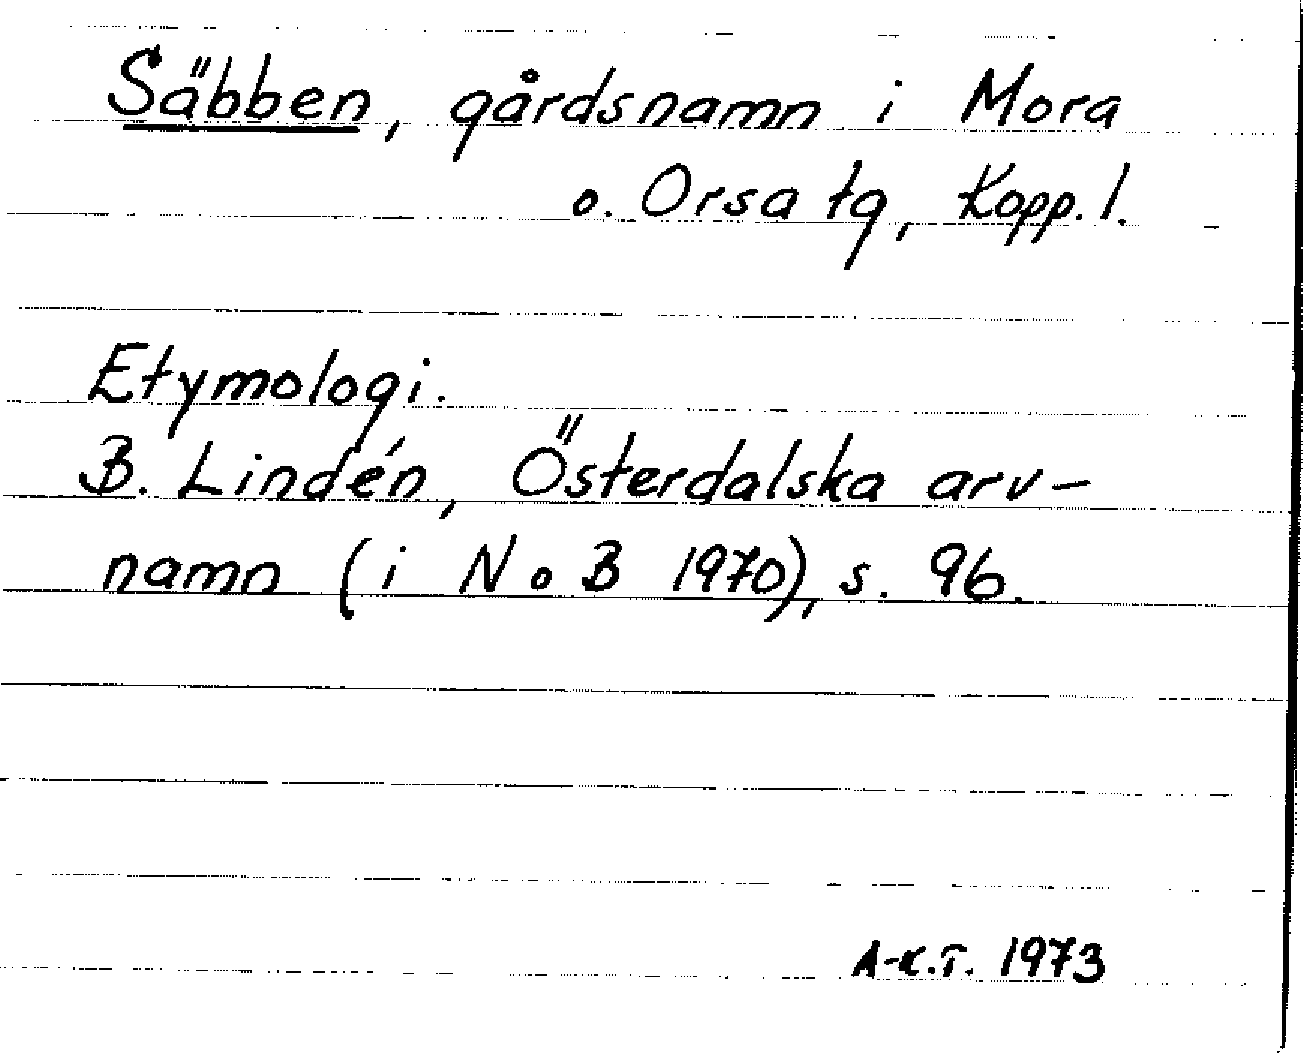 Säbben, gårdsnamn i Mora
o. Orsa tg, Kopp. l.
Etymologi.
B. Lindén, Österdalska arv-
namn (i NoB 1970), s. 96.
A-K.T. 1973